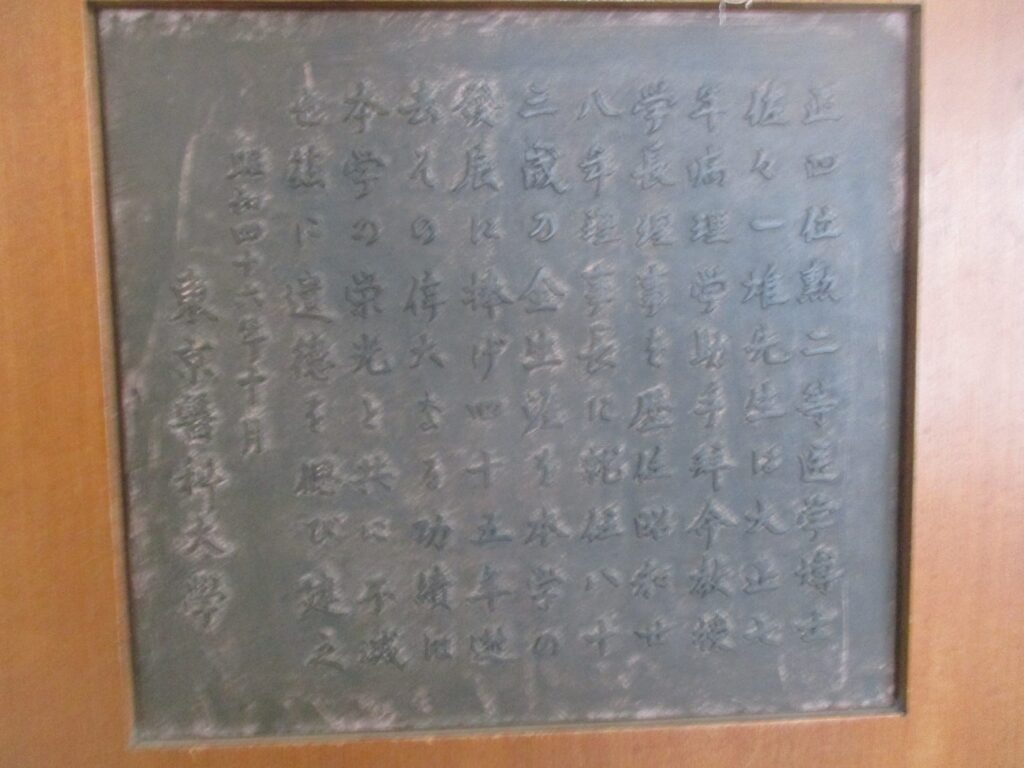 正四位勲二等医学博士
佐々一雄先生は大正七
年病理学助手拝命教授
学長理事を歴任昭和廿
八年理事長に就任八十
三歳の全生涯を本学の
発展に捧げ四十五年逝
去その偉大なる功績は
本学の栄光と共に不滅
也茲に遺徳を偲び建之
昭和四十六年十月
東京医科大學